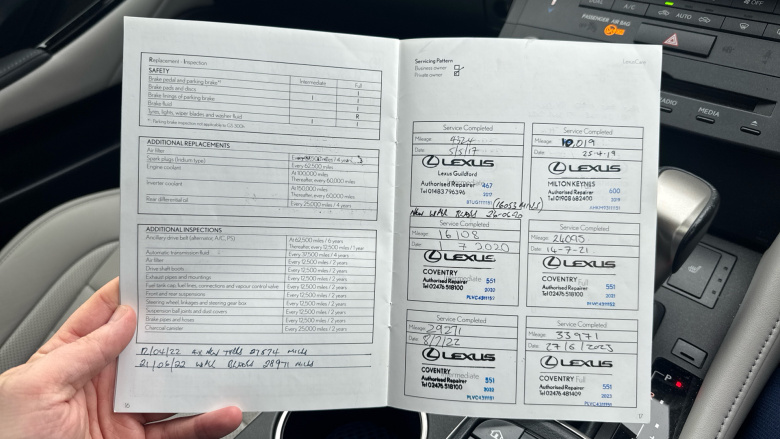 Replacement - Inspection
SAFETY
Intermediate Full
Brake pedal and parking brake*¹ I
Brake pads and discs I
Brake linings of parking brake I I
Brake fluid R
Tyres, lights, wiper blades and washer fluid I I
ADDITIONAL REPLACEMENTS
Air filter
Spark plugs (Iridium type) Every 62,500 miles
Engine coolant At 100,000 miles
Thereafter, every 60,000 miles
Inverter coolant At 150,000 miles
Thereafter, every 60,000 miles
Rear differential oil Every 25,000 miles / 4 years
ADDITIONAL INSPECTIONS
Ancillary drive belt (alternator, A/C, PS) At 62,500 miles / 6 years
Thereafter, every 12,500 miles / 1 year
Automatic transmission fluid Every 37,500 miles / 4 years
Air filter Every 12,500 miles / 2 years
Drive shaft boots Every 12,500 miles / 2 years
Exhaust pipes and mountings Every 12,500 miles / 2 years
Fuel tank cap, fuel lines, connections and vapour control valve Every 12,500 miles / 2 years
Front and rear suspensions Every 12,500 miles / 2 years
Steering wheel, linkages and steering gear box Every 12,500 miles / 2 years
Suspension ball joints and dust covers Every 12,500 miles / 2 years
Brake pipes and hoses Every 12,500 miles / 2 years
Charcoal canister Every 25,000 miles / 2 years
12/04/22 NEW TYRES 27674 MILES
21/06/22 WIPER BLADES 28971 MILES
16
Servicing Pattern
Business owner
Private owner
LexusCare
Service Completed
Mileage: 4324
Date: 5/5/17
LEXUS
Lexus Guildford
Authorised Repairer 467
Tel 01483 796396 2017
Service Completed
Mileage: 10,019
Date: 25-4-19
LEXUS
MILTON KEYNES
Authorised Repairer 600
Tel 01908 682400 2019
(16053 MILES)
NEW WIPER BLADES 26-06-20
Service Completed
Mileage: 16108
Date: 1-7-2020
LEXUS
COVENTRY Intermediate
Authorised Repairer 551
Tel 02476 518100
Service Completed
Mileage:
Date: 14-7-21
LEXUS
COVENTRY Full
Authorised Repairer 551
Tel 02476 518100
Service Completed
Mileage: 29271
Date: 8/7/22
LEXUS
COVENTRY Intermediate
Authorised Repairer 551
Tel 02476 518100 2022
Service Completed
Mileage: 33971
Date: 27/6/2023
LEXUS
COVENTRY Full
Authorised Repairer 551
Tel 02476 481409 2023
17
PASSENGER AIR BAG
AUTO
OFF
RADIO
MEDIA
P